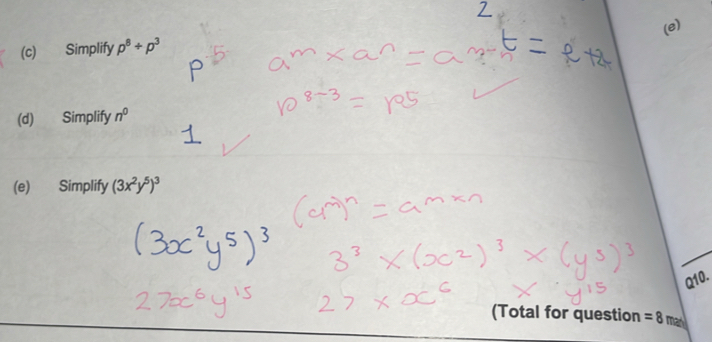 2
(e)
(c) Simplify p⁸ ÷ p³
p⁵ aᵐ × aⁿ = aᵐ⁻ⁿ t =
p⁸⁻³ = p5
(d) Simplify n⁰
1
(e) Simplify (3x²y⁵)³
(aᵐ)ⁿ = aᵐˣⁿ
(3x²y⁵)³ 3³ × (x²)³ × (y⁵)³
27x⁶y¹⁵ 27 × x⁶ × y¹⁵
Q10.
(Total for question = 8